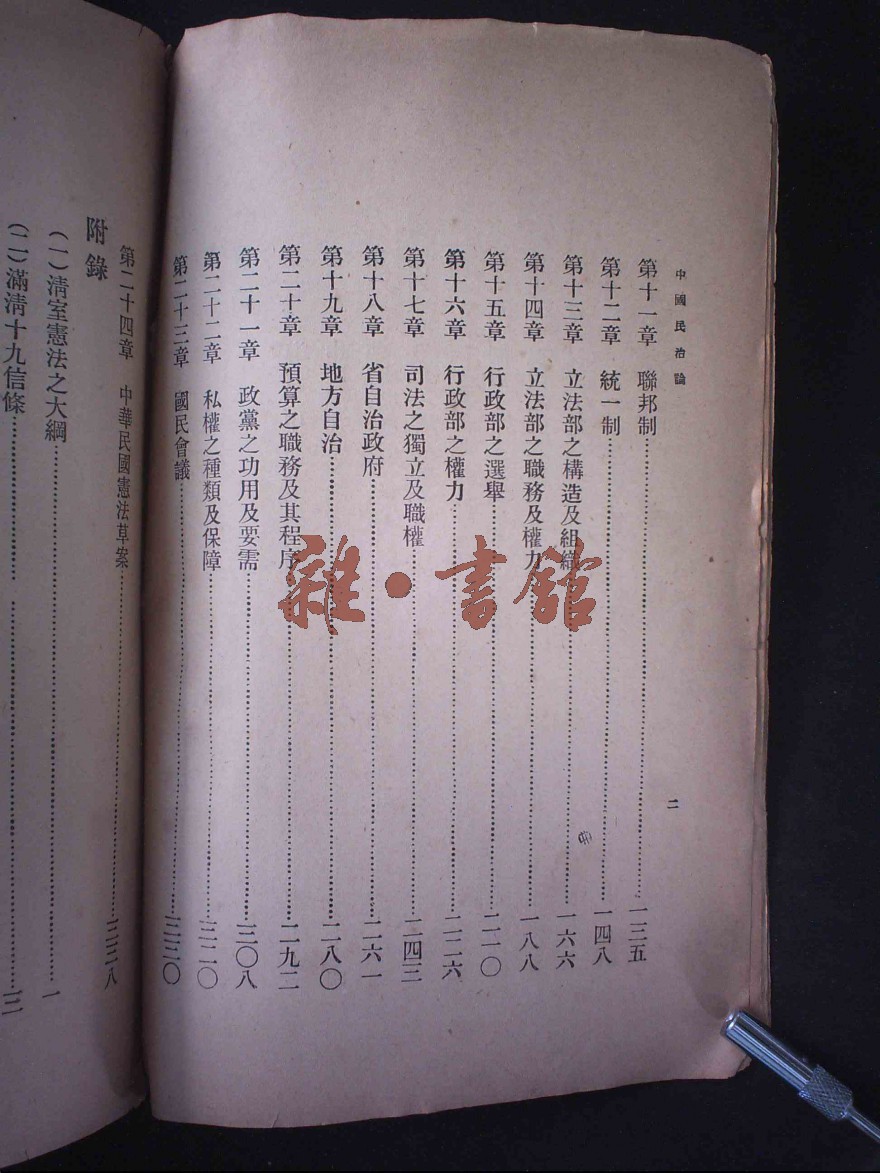 中國民治論
二
第十一章 聯邦制……一三五
第十二章 統一制……一四八
第十三章 立法部之構造及組織……一六六
第十四章 立法部之職務及權力……一八八
第十五章 行政部之選舉……二一〇
第十六章 行政部之權力……二二六
第十七章 司法之獨立及職權……二四三
第十八章 省自治政府……二六一
第十九章 地方自治……二八〇
第二十章 預算之職務及其程序……二九二
第二十一章 政黨之功用及要需……三〇八
第二十二章 私權之種類及保障……三二〇
第二十三章 國民會議……三三〇
第二十四章 中華民國憲法草案……三三八
附錄
(一)清室憲法之大綱……一
(二)滿清十九信條……三
雜·書館